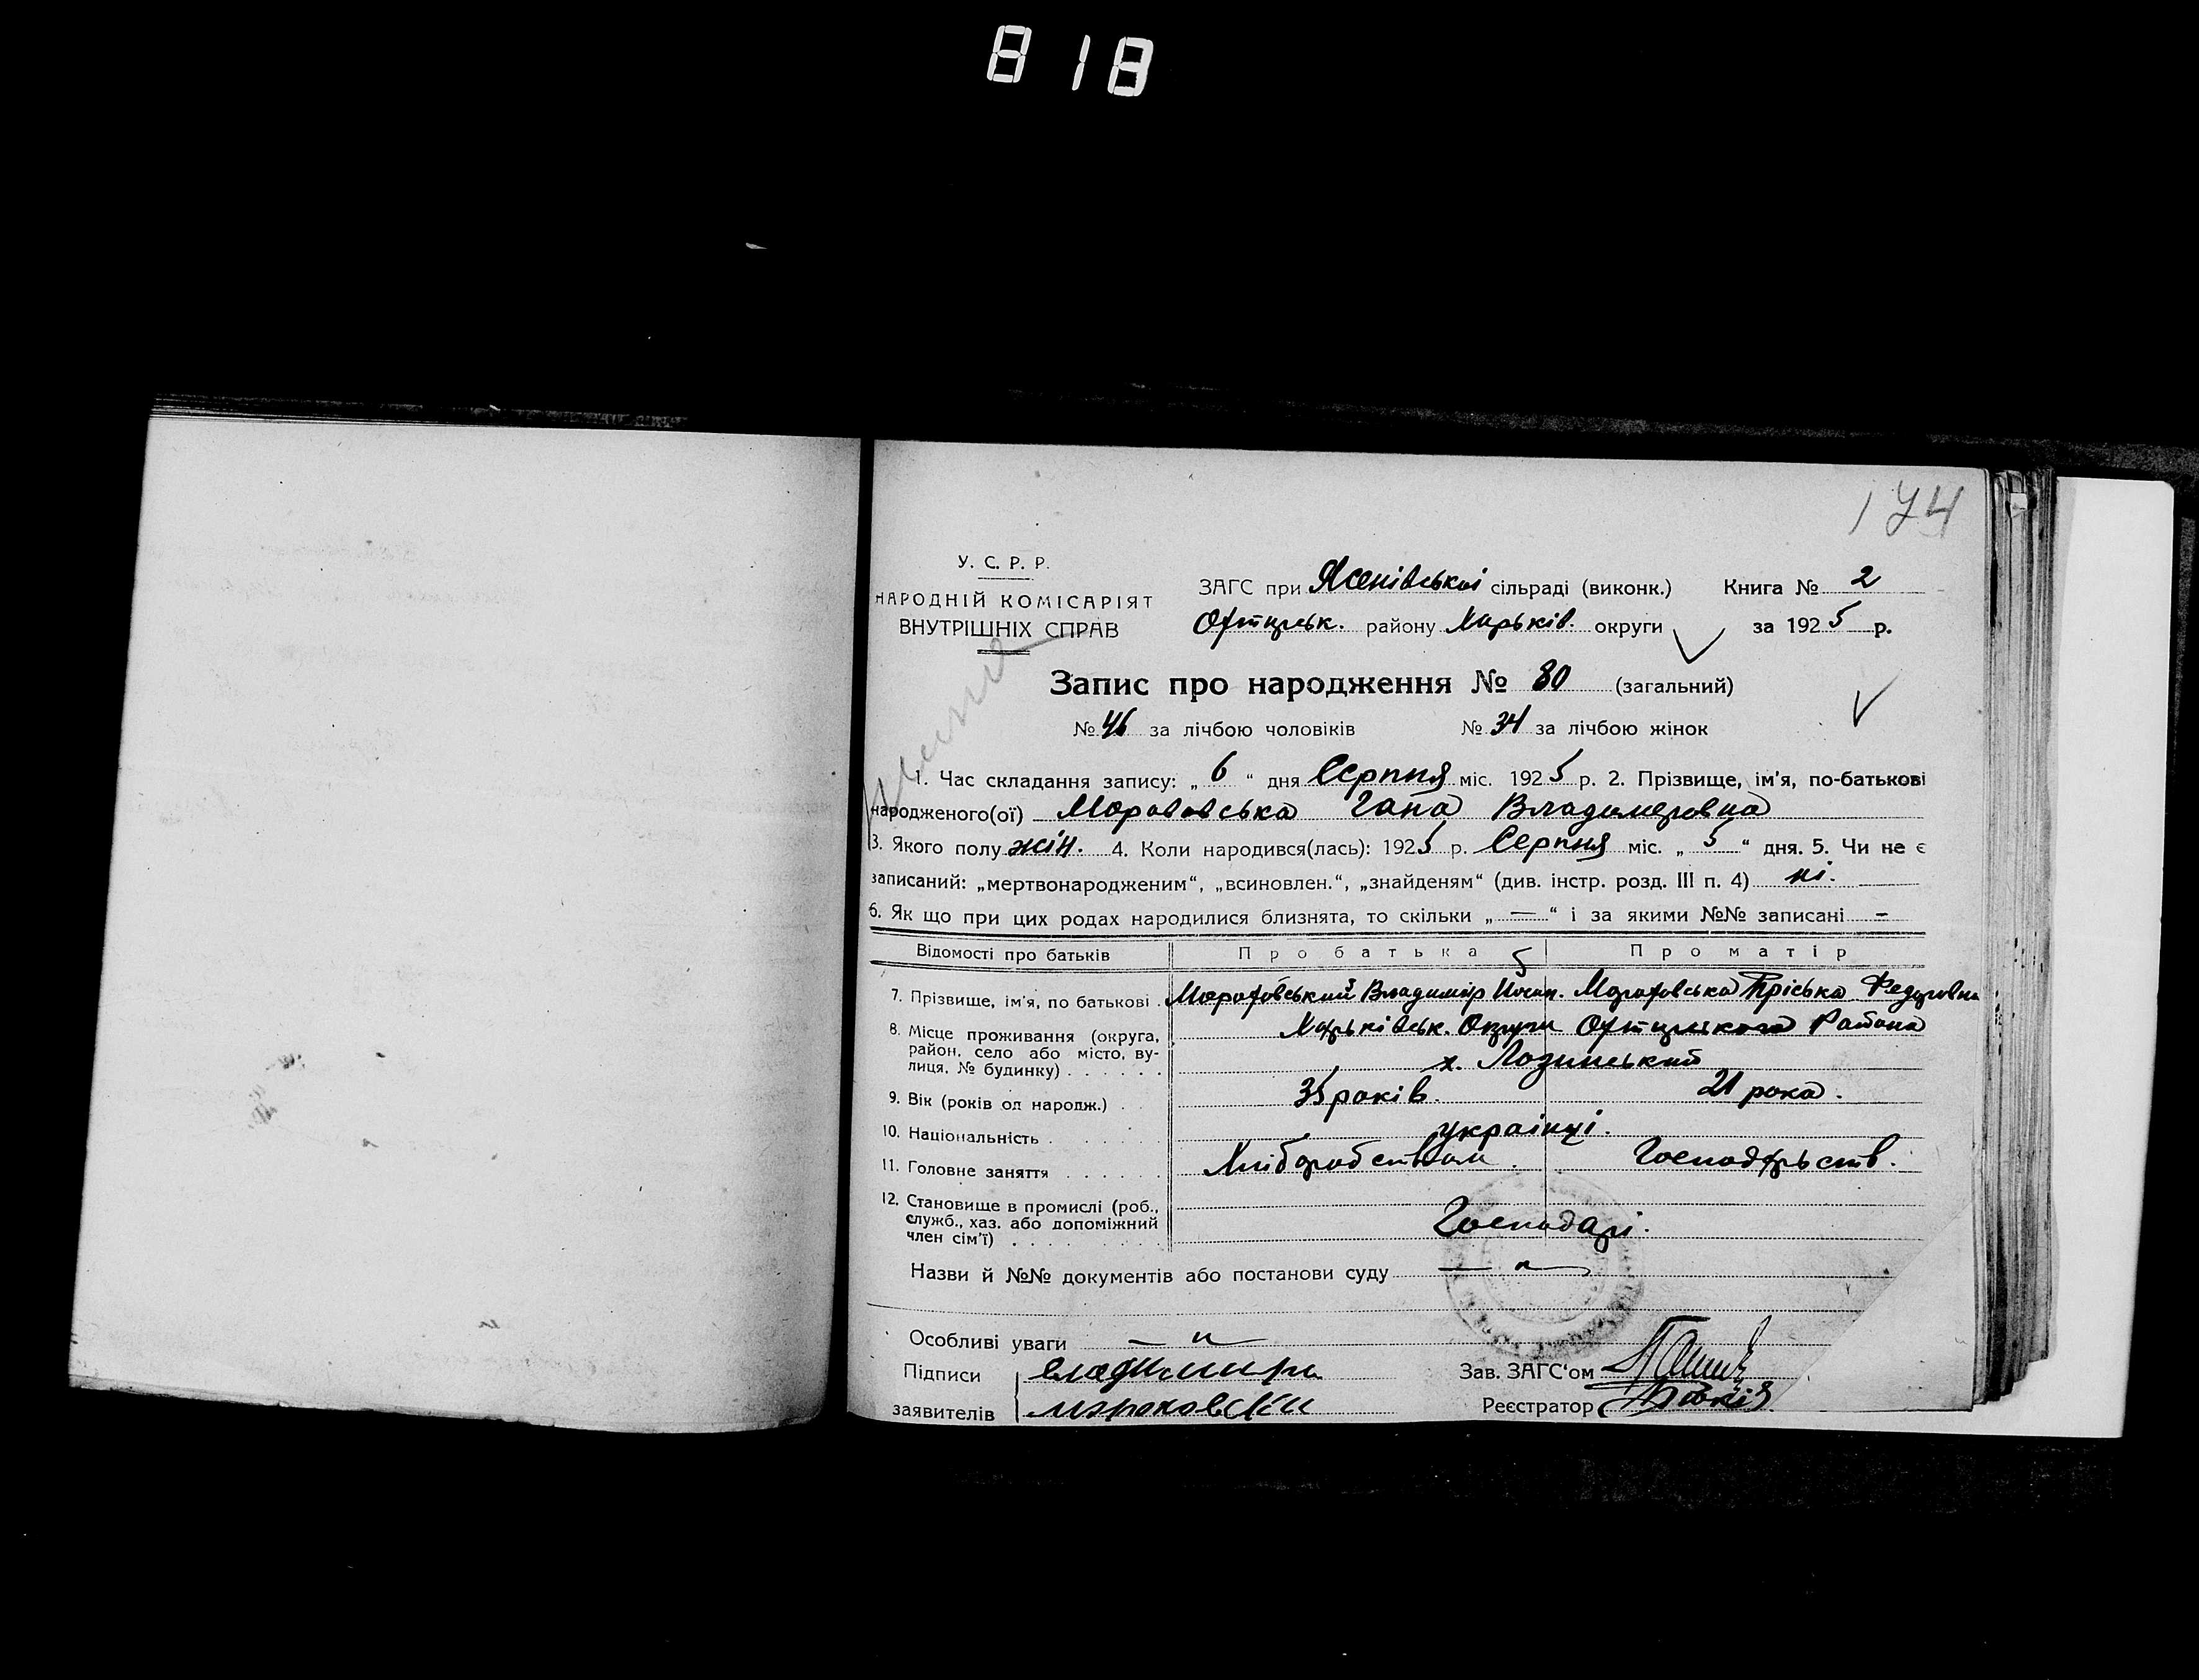 818
174
У. С. Р. Р.
НАРОДНІЙ КОМІСАРІЯТ
ВНУТРІШНІХ СПРАВ
ЗАГС при сільраді (виконк.) Книга № 2
району Харьків. округи за 1925 р.
Запис про народження № 80 (загальний)
№ 46 за лічбою чоловіків № 34 за лічбою жінок
1. Час складання запису: „ 6 “ дня Серпня міс. 1925 р. 2. Прізвище, ім'я, по-батькові
народженого(ої) Гапа Владимеровна
3. Якого полу жін. 4. Коли народився(лась): 1925 р. Серпня міс. „ 5 “ дня. 5. Чи не є
записаний: „мертвонародженим“, „всиновлен.“, „знайденям“ (див. інстр. розд. III п. 4) ні.
6. Як що при цих родах народилися близнята, то скільки „ — “ і за якими №№ записані -
Відомості про батьків Про батька Про матір
7. Прізвище, ім'я, по батькові . Владимір Федоровна
8. Місце проживання (округа, район, село або місто, вулиця, № будинку) . . . . . . Харьківськ. Округи Района
х.
9. Вік (років од народж.) . . 35 років. 21 рока.
10. Національність . . . . . . українці.
11. Головне заняття . . . . . . Хліборобством. Господарьств.
12. Становище в промислі (роб., служб., хаз. або допоміжний член сім'ї) . . . . . . Господарі.
Назви й №№ документів або постанови суду — „ —
Особливі уваги — „ —
Підписи Зав. ЗАГС'ом
заявителів Реєстратор